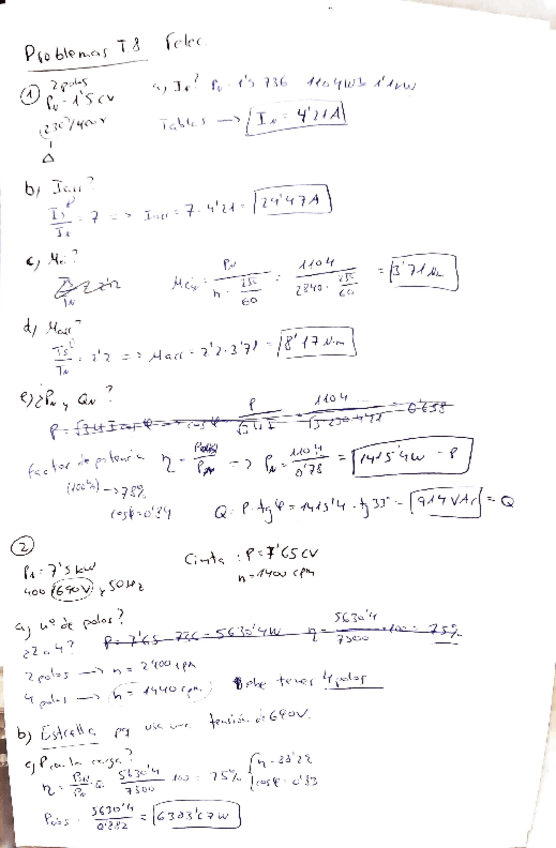 Problemas T8 Felec.
① 2 polos
PN = 1'5 CV
(230)/400V
Δ
a) IN? PN = 1'5 · 736 = 1104W = 1'1 kW
Tablas → IN = 4'21A
b) Iarr?
Is/IN = 7 => Iarr = 7 · 4'21 = 24'47A
c) MN?
PN / n · 2π/60 = 1104 / 2840 · 2π/60 = 3'71 Nm
d) Marr?
Ts/TN = 2'2 => Marr = 2'2 · 3'71 = 8'17 N·m
e) ¿PN y QN?
Factor de potencia
(100%) → 78%
cosφ = 0'84
η = → PN = 1104 / 0'78 = 1415'4W = P
Q = P · tgφ = 1415'4 · tg 33 = 914 VAr = Q
②
PN = 7'5 kW
400/690V y 50Hz
Cinta : P = 7'65 CV
n = 1400 rpm
a) nº de polos?
¿2 o 4? P = 7'65 · 736 = 5630'4W η = 5630'4 / 7500 · 100 = 75%
2 polos → n = 2900 rpm
4 polos → n = 1440 rpm. Debe tener 4 polos
b) Estrella por usar una tensión de 690V.
c) P con la carga?
η = 5630'4 / 7500 · 100 = 75% cosφ = 0'83
Pabs = 5630'4 / 0'882 = 6383'67W